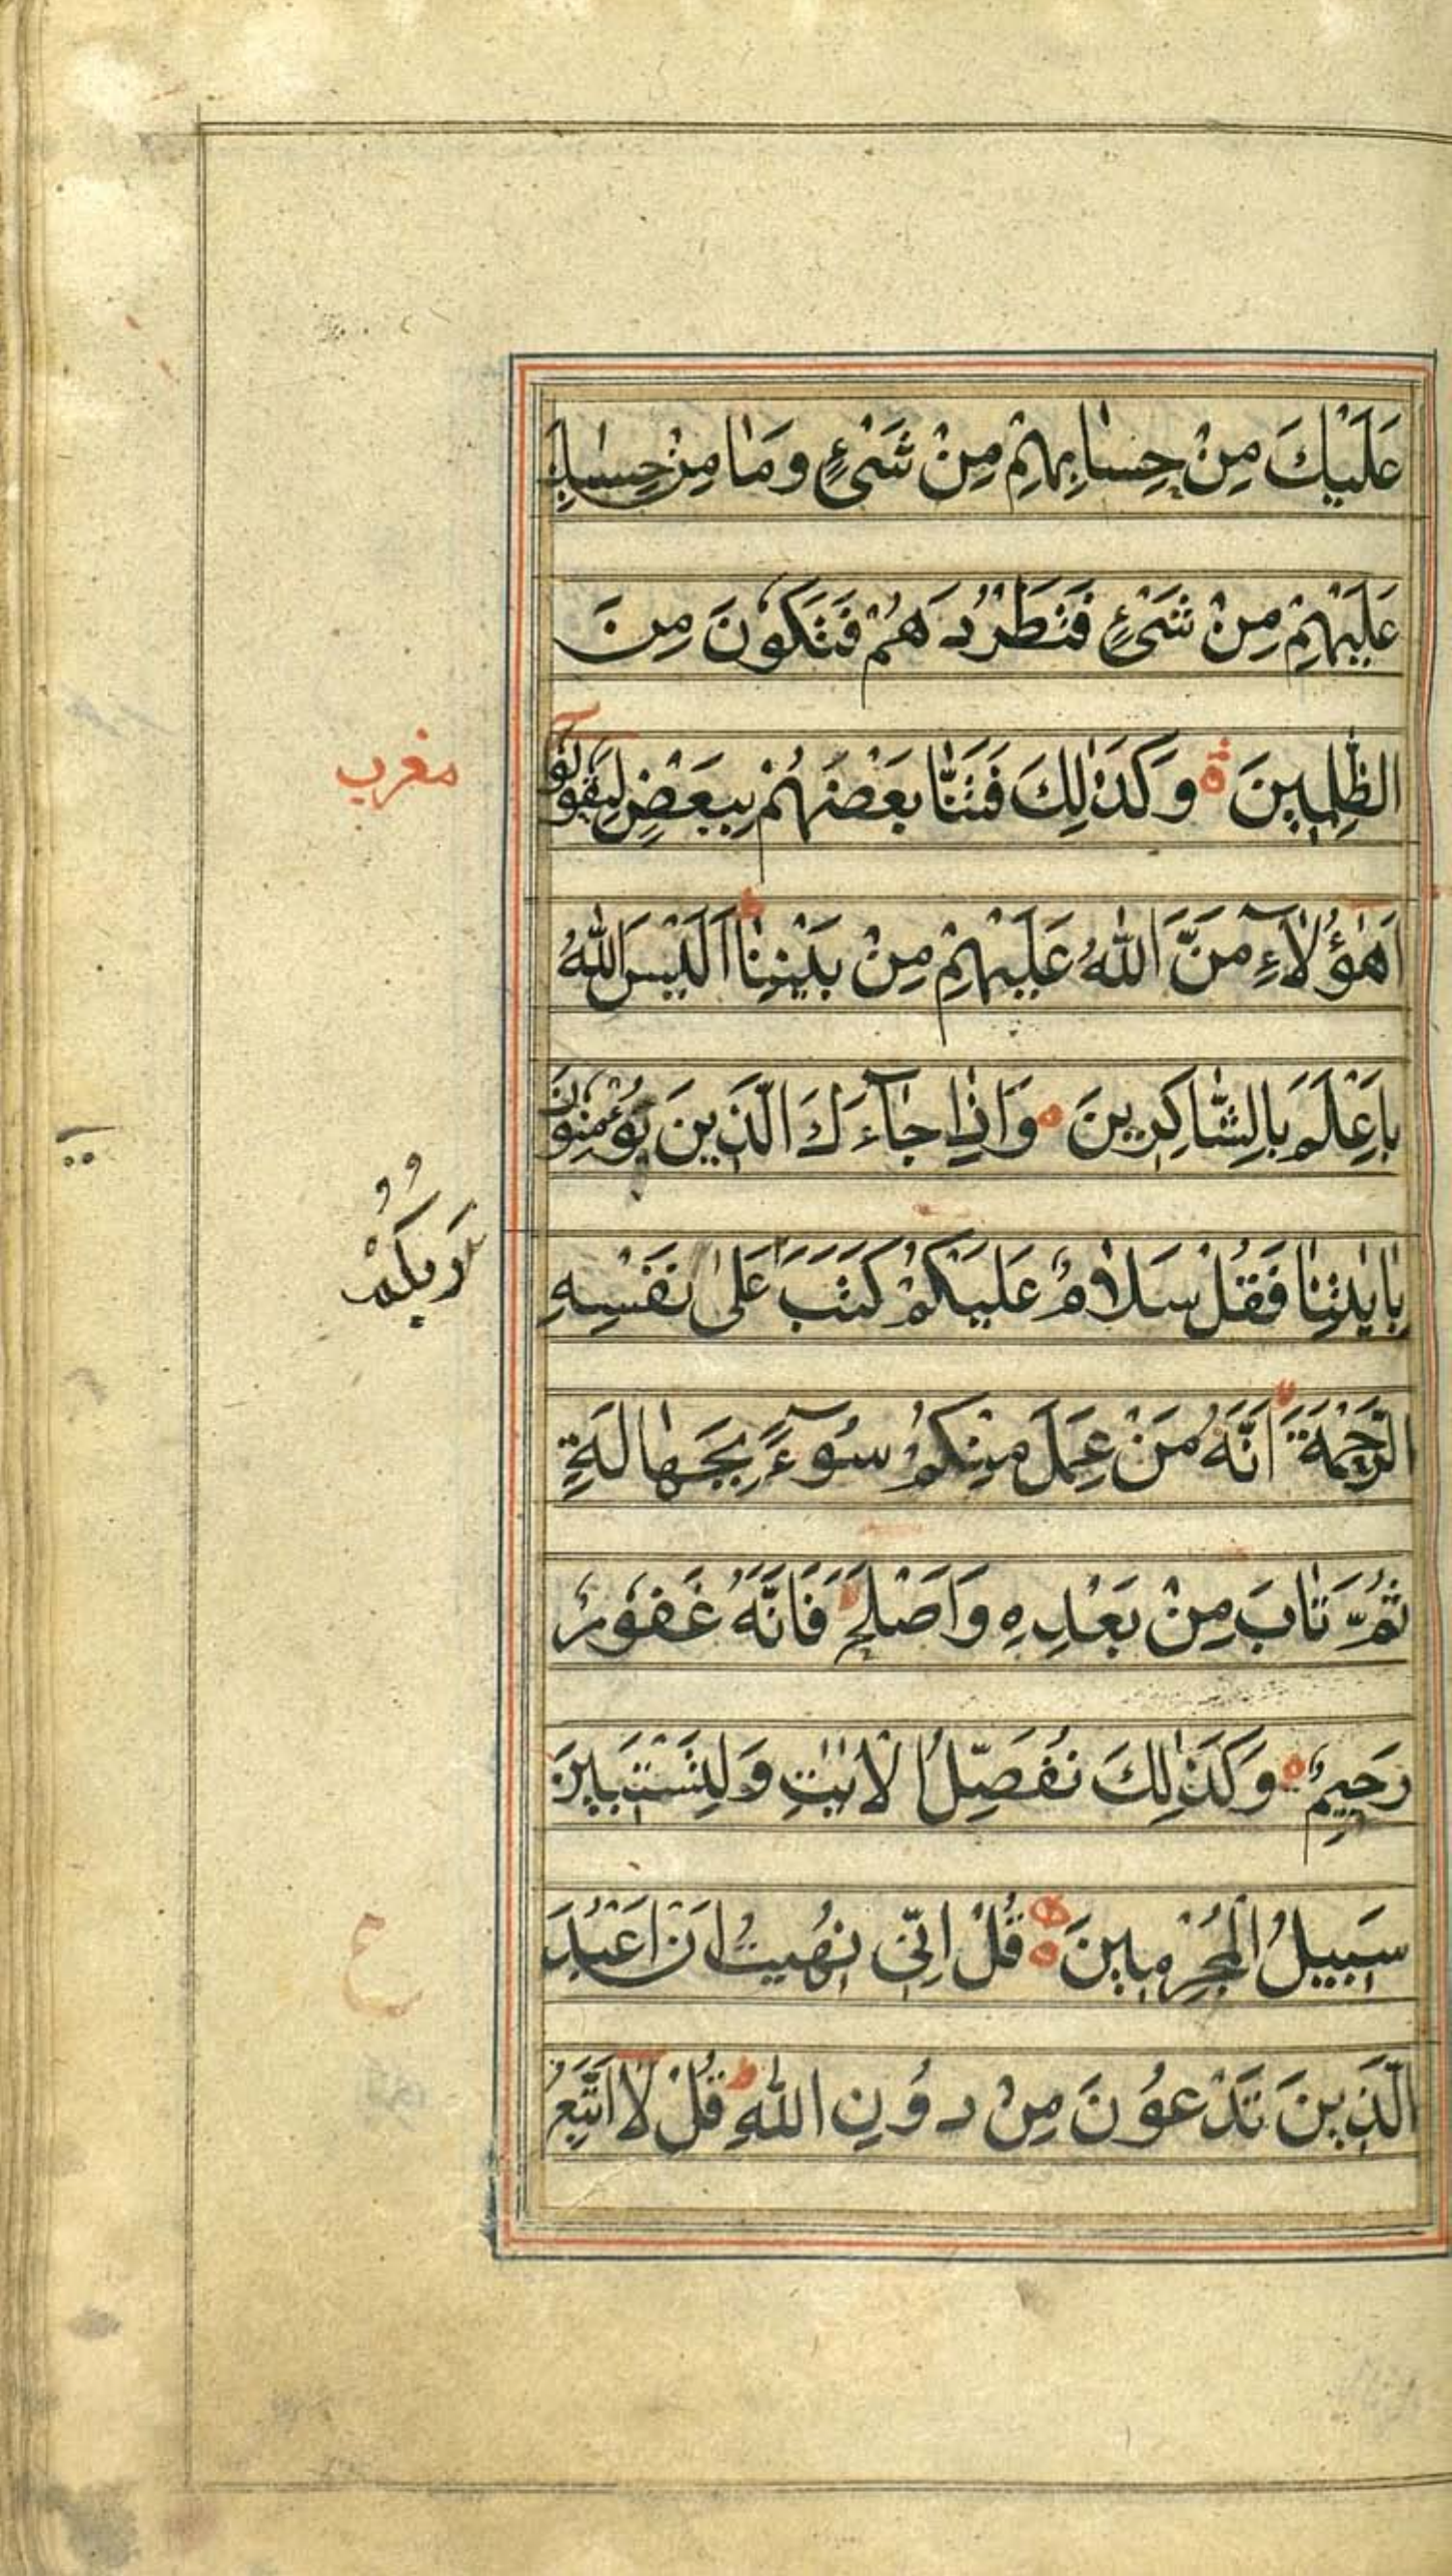 عَلَيْكَ مِنْ حِسٰابِهِمْ مِنْ شَيْءٍ وَمٰا مِنْ حِسٰابِكَ
عَلَيْهِمْ مِنْ شَيْءٍ فَتَطْرُدَهُمْ فَتَكُونَ مِنَ
الظّٰلِمِينَ ة وَكَذٰلِكَ فَتَنّٰا بَعْضَهُمْ بِبَعْضٍ لِيَقُولُوا
مغرب
اَهٰؤُلَاءِ مَنَّ اللّٰهُ عَلَيْهِمْ مِنْ بَيْنِنٰا ط اَلَيْسَ اللّٰهُ
بِاَعْلَمَ بِالشّٰاكِرِينَ ه وَاِذٰا جٰآءَكَ الَّذِينَ يُؤْمِنُونَ
بِاٰيٰتِنٰا فَقُلْ سَلَامٌ عَلَيْكُمْ كَتَبَ عَلٰى نَفْسِهِ
رَبُّكُمْ
الرَّحْمَةَ لا اَنَّهُ مَنْ عَمِلَ مِنْكُمْ سُوٓءً بِجَهٰالَةٍ
ثُمَّ تٰابَ مِنْ بَعْدِهِ وَاَصْلَحَ لا فَاَنَّهُ غَفُورٌ
رَحِيمٌ ه وَكَذٰلِكَ نُفَصِّلُ الْاٰيٰتِ وَلِتَسْتَبِينَ
سَبِيلُ الْمُجْرِمِينَ ه قُلْ اِنِّي نُهِيتُ اَنْ اَعْبُدَ
ع
الَّذِينَ تَدْعُونَ مِنْ دُونِ اللّٰهِ ط قُلْ لَا اَتَّبِعُ